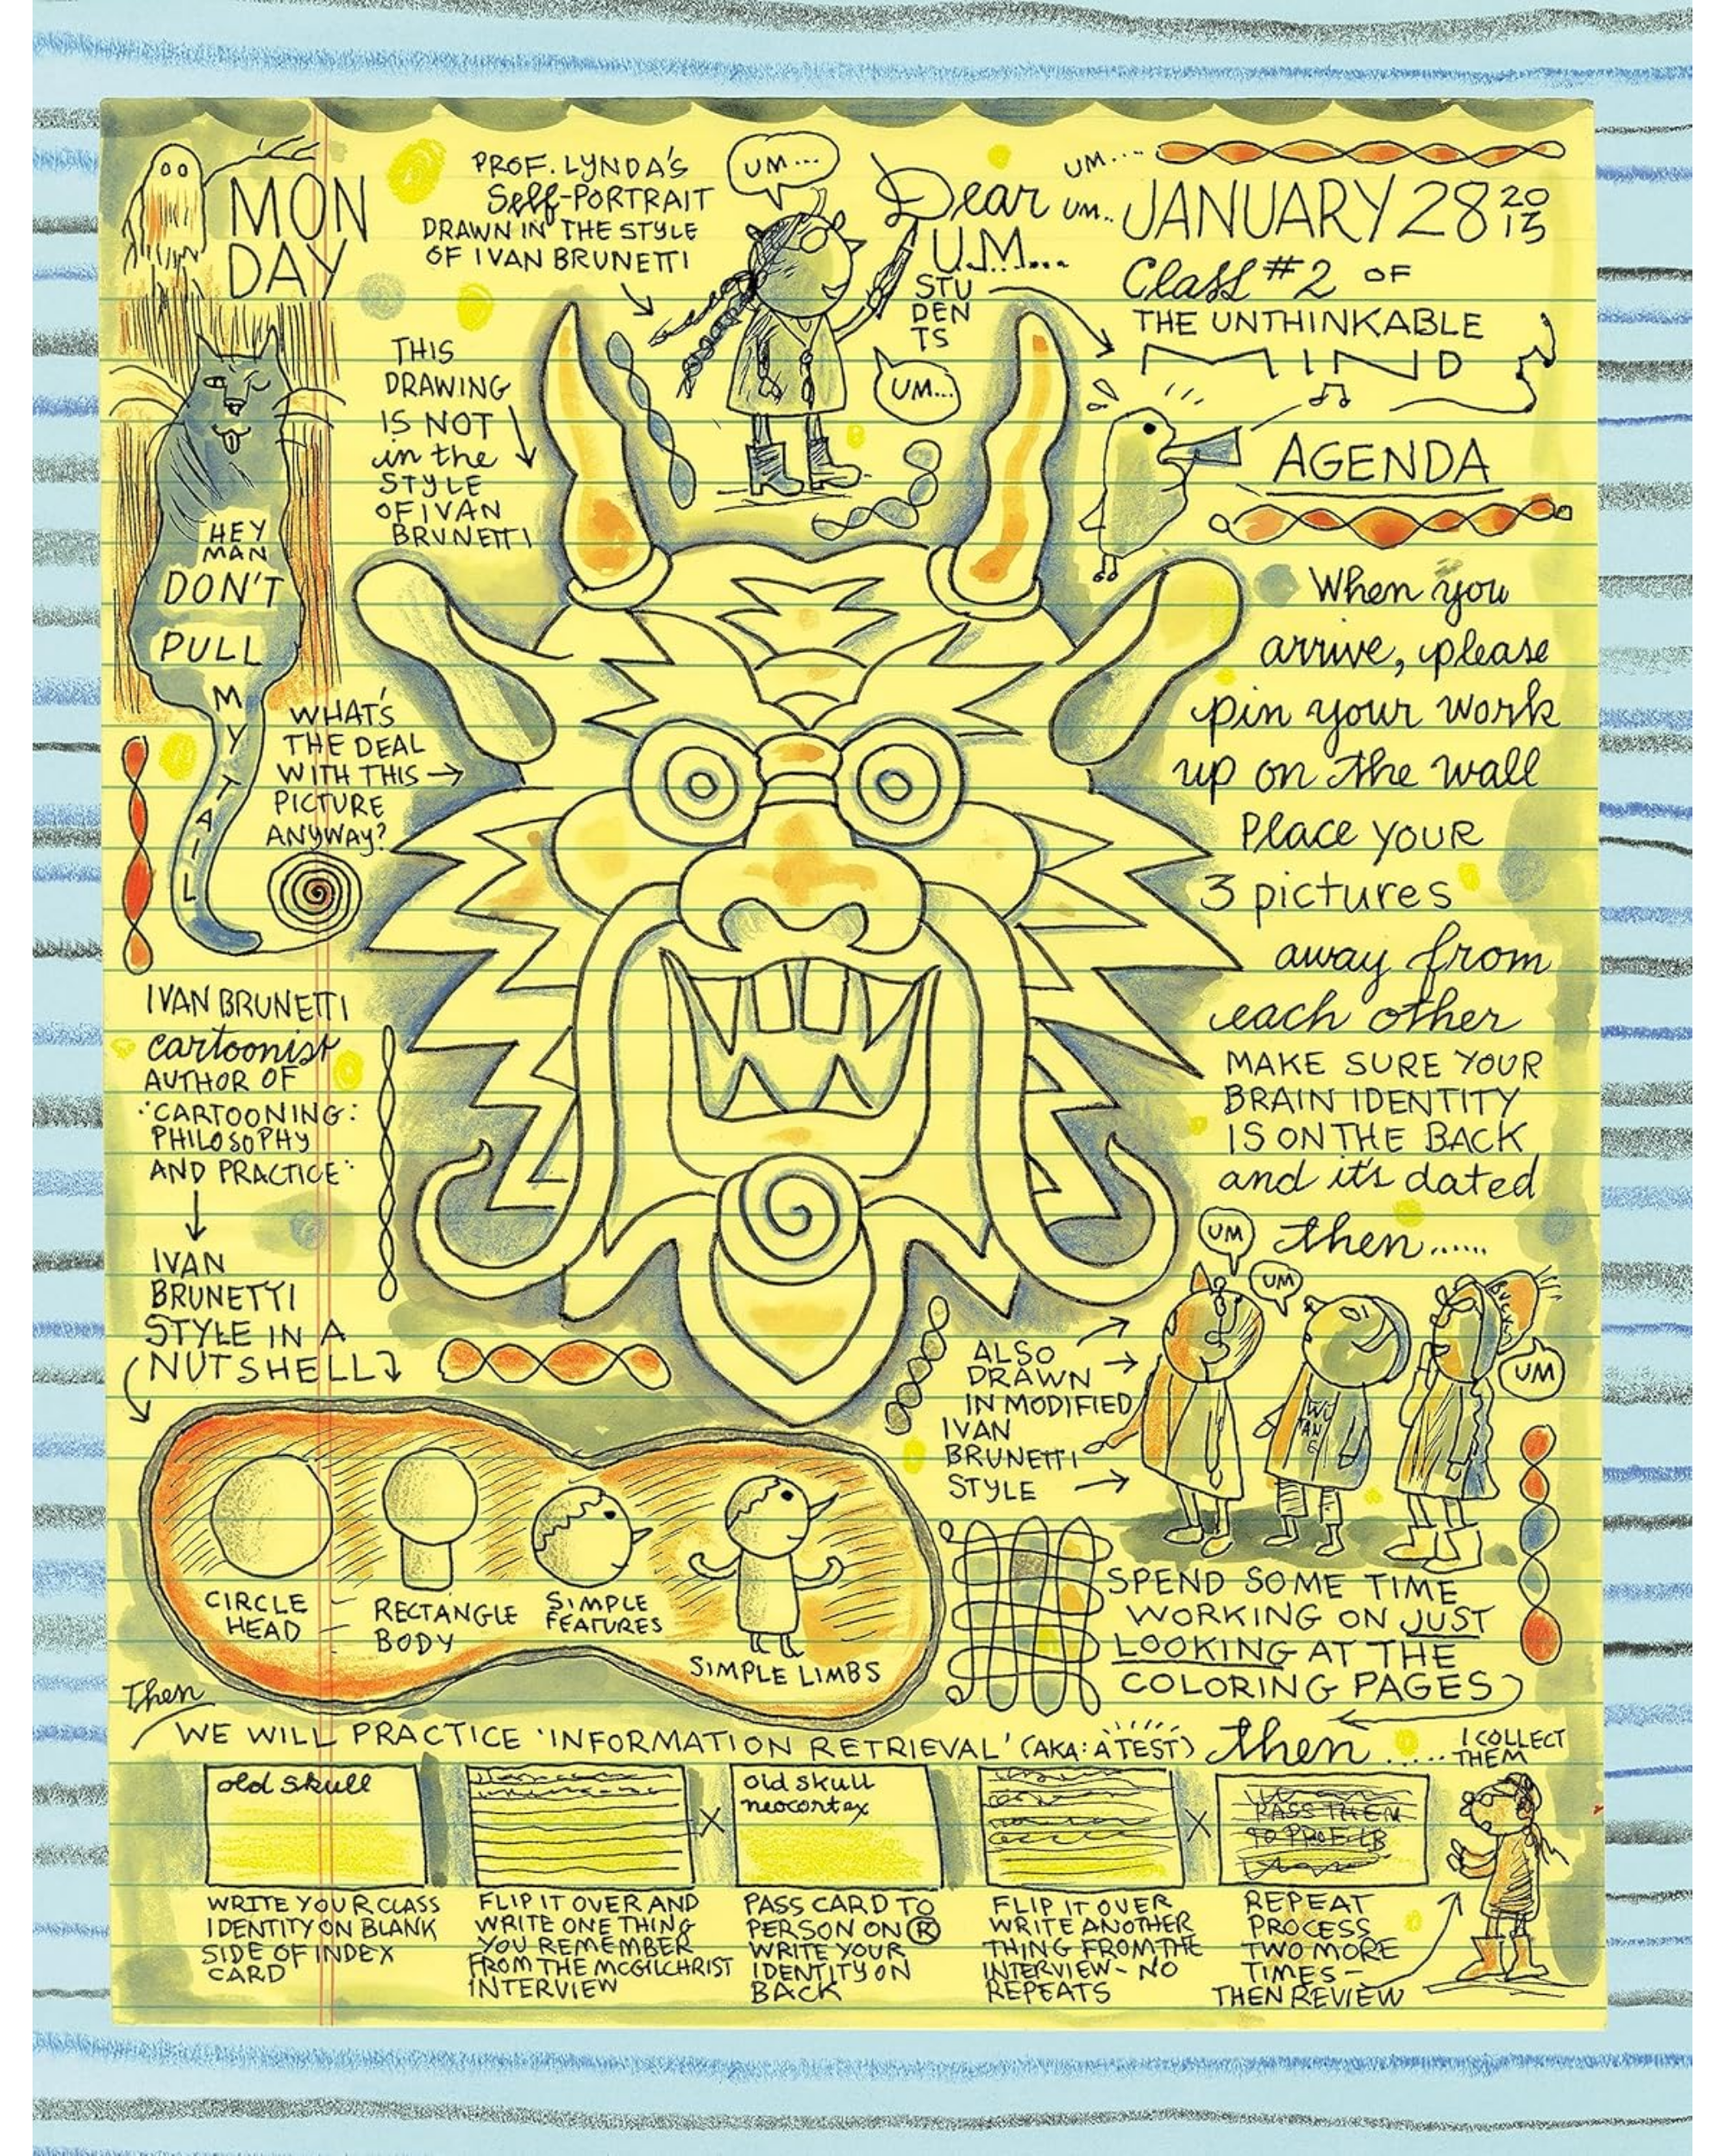 MON
DAY
PROF. LYNDA'S
Self-PORTRAIT
DRAWN IN THE STYLE
OF IVAN BRUNETTI
UM...
Dear
U.M...
STU
DEN
TS
UM...
UM....
UM..
JANUARY 28 20
13
Class #2 OF
THE UNTHINKABLE
MIND
AGENDA
THIS
DRAWING
IS NOT
in the
STYLE
OF IVAN
BRUNETTI
HEY
MAN
DON'T
PULL
M
Y
T
A
I
L
WHAT'S
THE DEAL
WITH THIS
PICTURE
ANYWAY?
When you
arrive, please
pin your work
up on the wall
Place YOUR
3 pictures
away from
each other
MAKE SURE YOUR
BRAIN IDENTITY
IS ON THE BACK
and it's dated
then......
IVAN BRUNETTI
cartoonist
AUTHOR OF
"CARTOONING:
PHILOSOPHY
AND PRACTICE"
IVAN
BRUNETTI
STYLE IN A
NUTSHELL
CIRCLE
HEAD
RECTANGLE
BODY
SIMPLE
FEATURES
SIMPLE LIMBS
UM
UM
UM
WU
TAN
G
ALSO
DRAWN
IN MODIFIED
IVAN
BRUNETTI
STYLE
SPEND SOME TIME
WORKING ON JUST
LOOKING AT THE
COLORING PAGES
Then
WE WILL PRACTICE 'INFORMATION RETRIEVAL' (AKA: A TEST) then.....
I COLLECT
THEM
old skull
WRITE YOUR CLASS
IDENTITY ON BLANK
SIDE OF INDEX
CARD
FLIP IT OVER AND
WRITE ONE THING
YOU REMEMBER
FROM THE MCGILCHRIST
INTERVIEW
X
old skull
neocortex
PASS CARD TO
PERSON ON R
WRITE YOUR
IDENTITY ON
BACK
FLIP IT OVER
WRITE ANOTHER
THING FROM THE
INTERVIEW - NO
REPEATS
X
PASS THEM
TO PROF LB
REPEAT
PROCESS
TWO MORE
TIMES -
THEN REVIEW